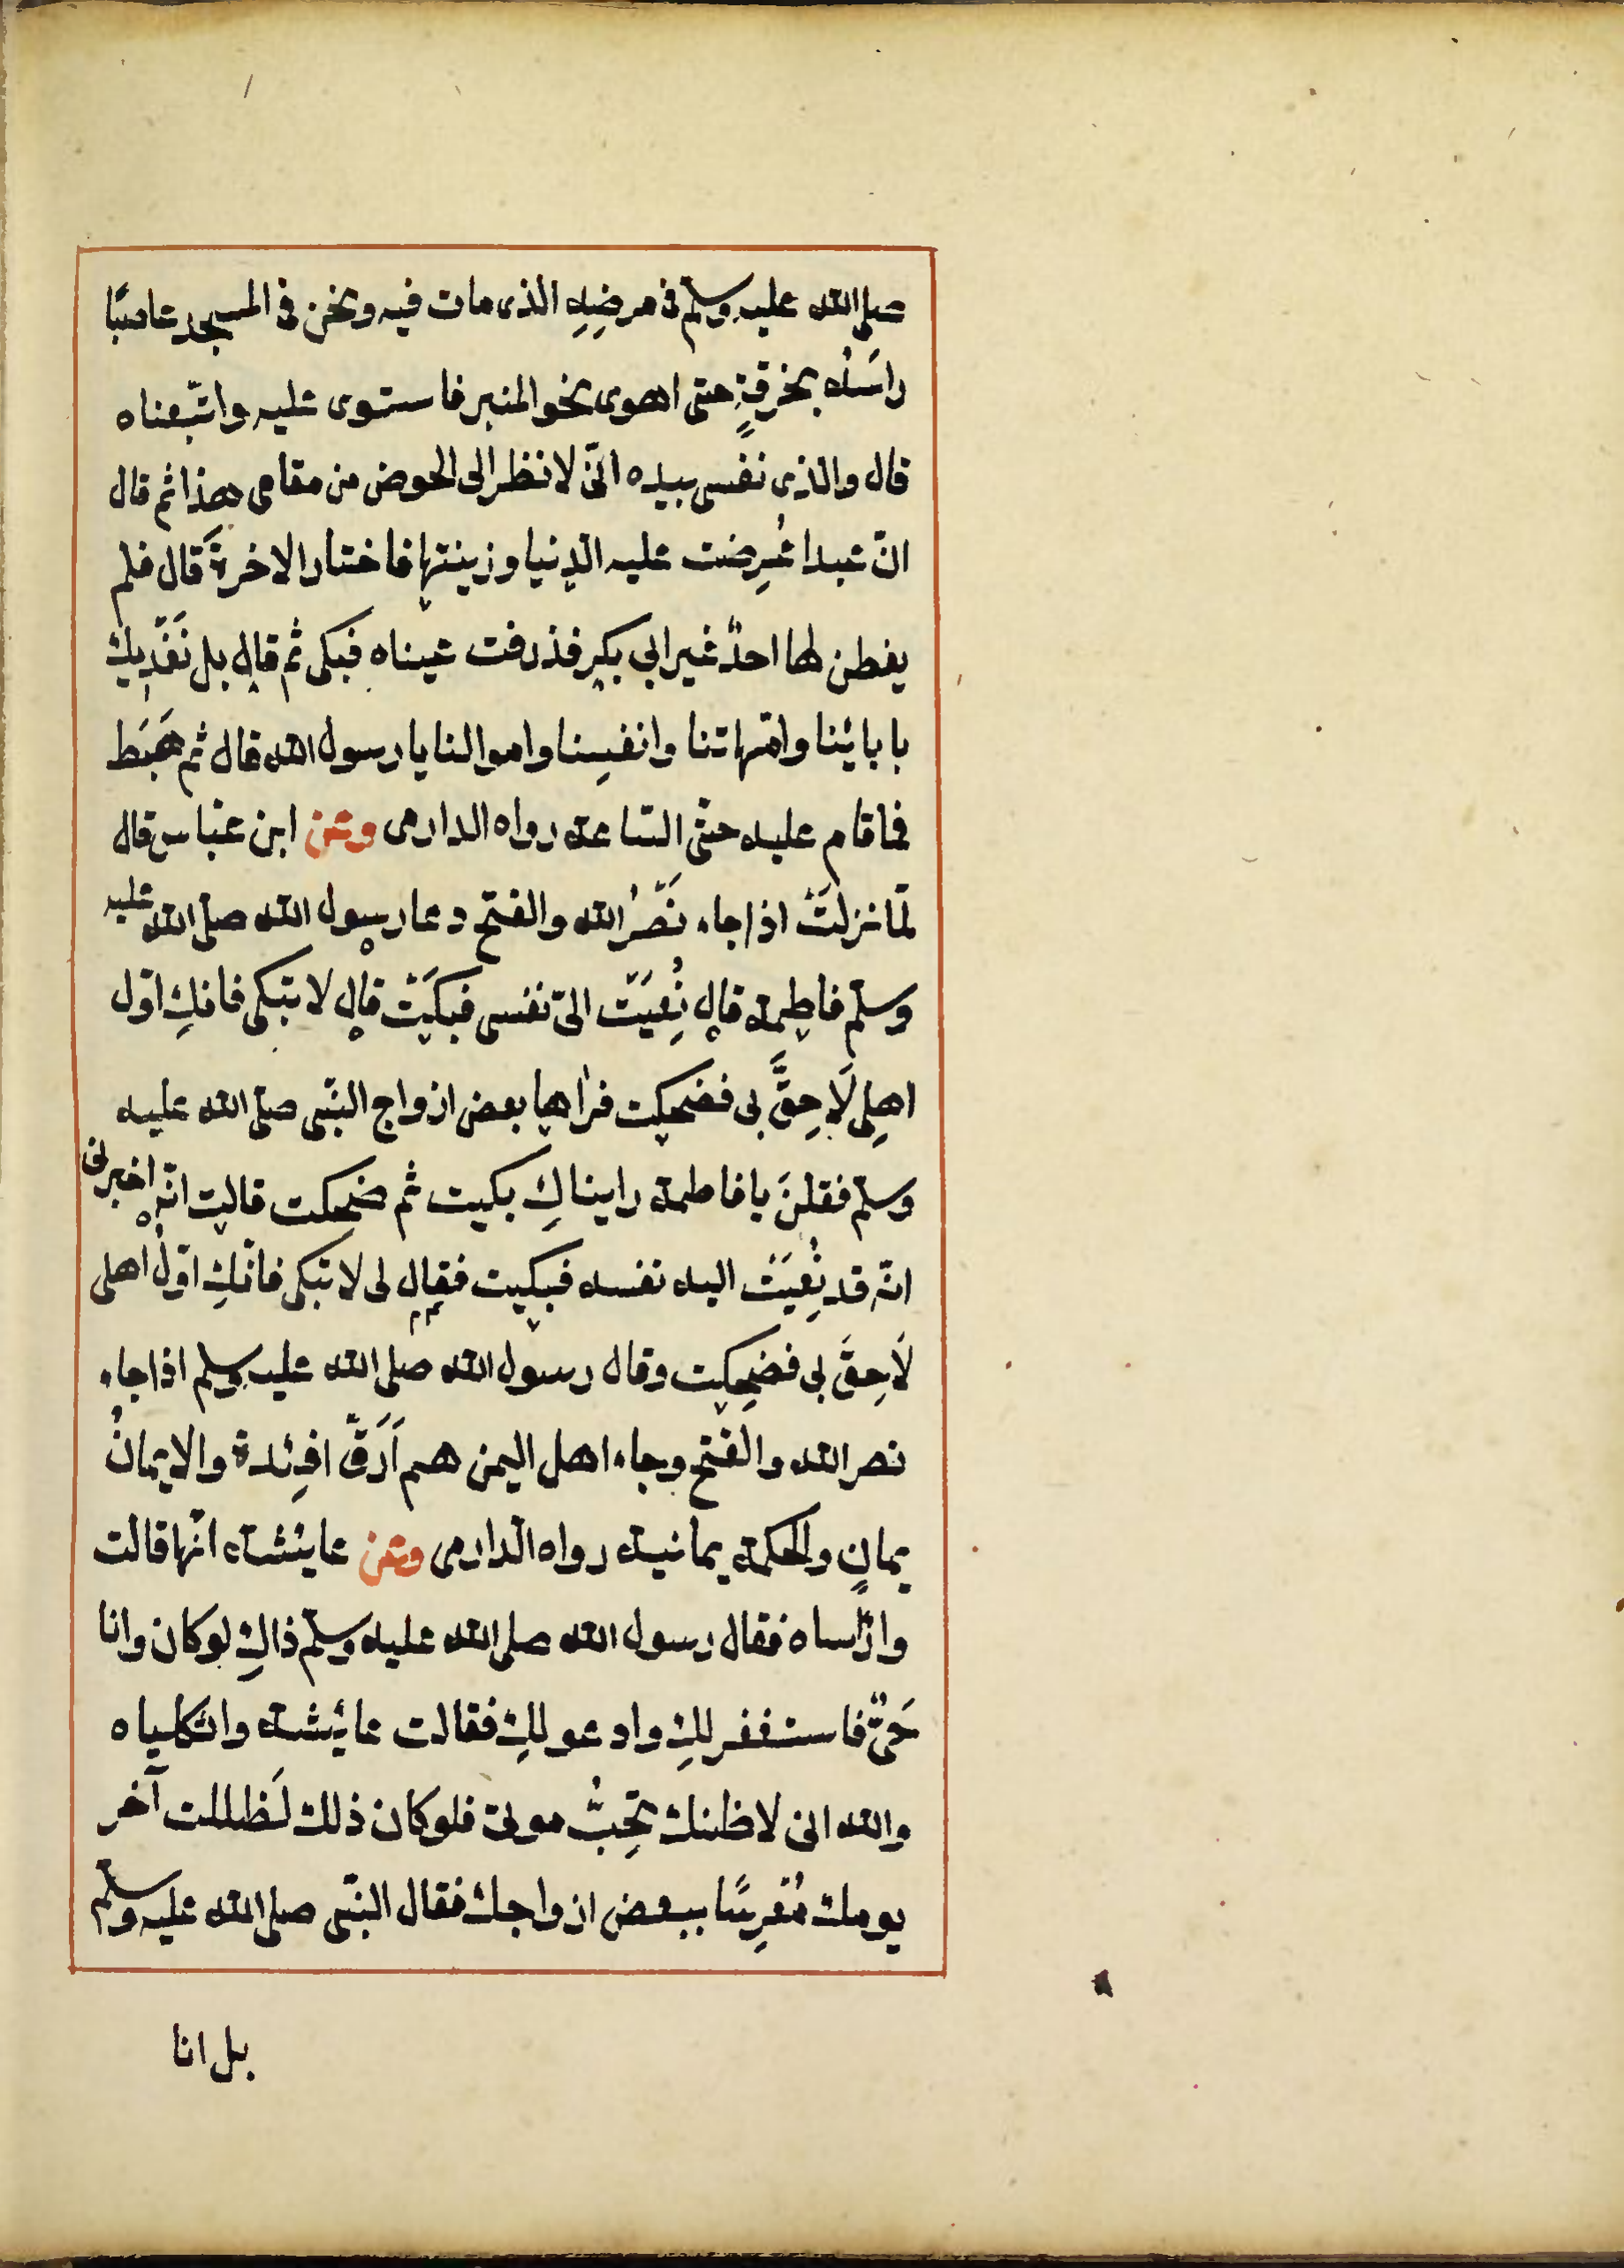 صلى الله عليه وسلم فى مرضِهِ الذى مات فيه ونحن فى المسجد عاصبًا
راسَهُ بخرقةٍ حتى اهوى نحو المنبر فاستوى عليه واتّبعناه
قال والذى نفسى بيده انّى لانظر الى الحوض من مقامى هذا ثم قال
انّ عبدا عُرِضت عليه الدنيا وزينتها فاختار الاخرةَ قال فلم
يفطن لها احدٌ غير ابي بكر فذرفت عيناه فبكى ثم قال بل نَفْدِيك
بابائنا وامّهاتنا وانفسِنا واموالنا يا رسول الله قال ثم هَبَط
فما قام عليه حتّى السّاعة رواه الدارمى وعن ابن عبّاس قال
لمّا نزلتْ اذا جاء نَصْرُ الله والفتح دعا رسول الله صلّى الله عليه
وسلّم فاطمة قال نُعِيَتْ الىّ نفسى فبكَتْ قال لا تبكى فانكِ اوّل
اهلِى لَاحِقٌ بى فضحكت فرآها بعض ازواج النّبى صلّى الله عليه
وسلّم فقلنَ يا فاطمة رايناكِ بكيت ثم ضحكت قالت انّه اخبرنى
انّه قد نُعِيَتْ اليه نفسه فبكيت فقال لى لا تبكى فانّكِ اوّلُ اهلى
لَاحِقٌ بى فضحِكت وقال رسول الله صلى الله عليه وسلم اذا جاء
نصر الله والفتح وجاء اهل اليمن هم اَرَقُّ افئِدة والايمانُ
يمانٍ والحكمة يمانية رواه الدارمى وعن عايئشة انّها قالت
واراْساه فقال رسول الله صلى الله عليه وسلّم ذاكِ لو كان وانا
حَىٌّ فاستغفر لكِ وادعو لكِ فقالت عايئشة واثكلياه
والله انى لاظنك تُحِبُّ موتى فلو كان ذلك لَظللت آخر
يومك مُعْرِسًا ببعض ازواجك فقال النّبى صلى الله عليه وسلّم
بل انا